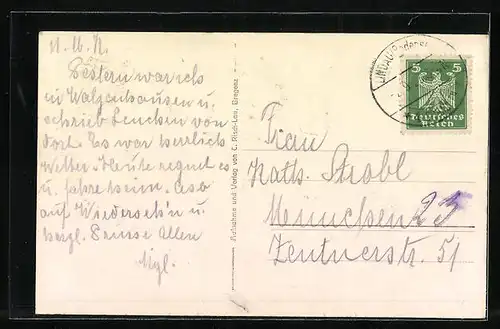 Gestern war ich
in Walzenhausen u.
schrieb Lenchen von
dort. Es war herrlich
Wetter. Heute regnet es
u. fahre heim. Also
auf Wiederseh'n u.
herzl. Grüsse Allen
Aufnahme und Verlag von C. Risch-Lau, Bregenz
LINDAU
5 5
Deutsches
Reich
Frau
Kath. Strobl
München 23
Zentnerstr. 51